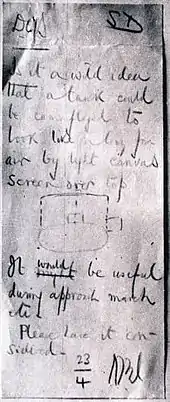 DCGS SD
Is it a wild idea
that a tank could
be camouflaged to
look like a lorry from
air by light canvas
screens over top.
It would be useful
during approach march
etc.
Please have it con-
sidered.
23
4